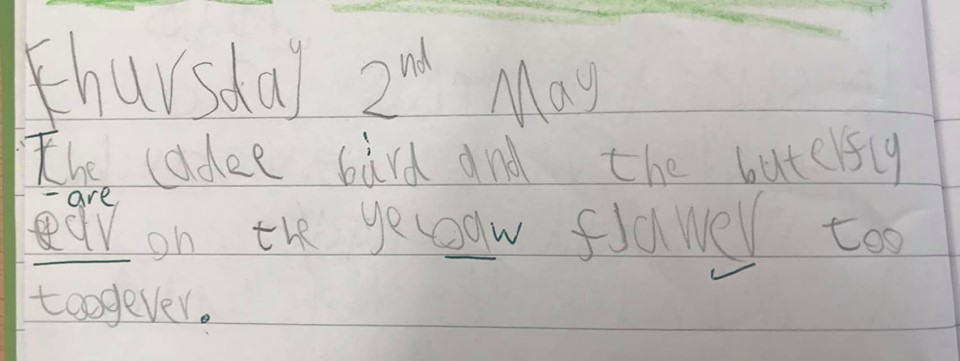 thursday 2nd May
The ladee bird and the butelfly
are
ear on the yeloaw flawer too
toogever.